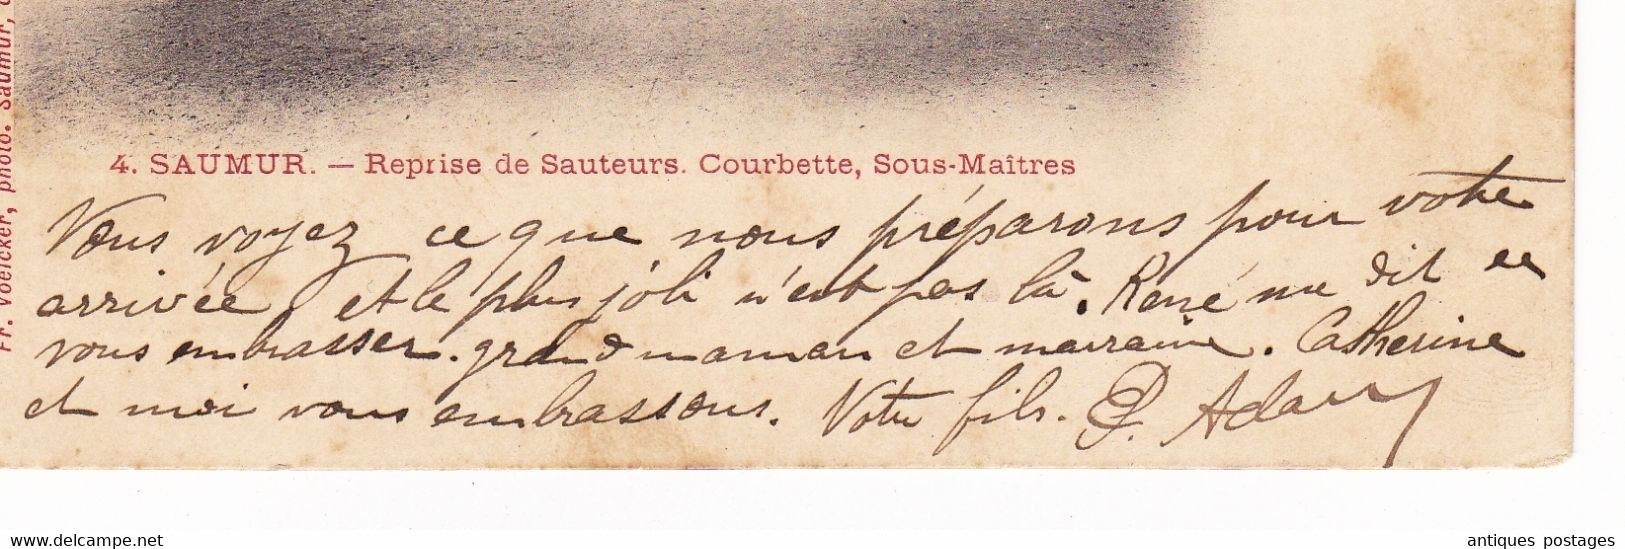 Fr. Voelcker, photo. Saumur,
4. SAUMUR. — Reprise de Sauteurs. Courbette, Sous-Maîtres
Vous voyez ce que nous préparons pour votre
arrivée, et le plus joli n'est pas là. René me dit de
vous embrasser. grand maman et marraine. Catherine
et moi vous embrassons. Votre fils. P. Adam
www.delcampe.net
antiques postages